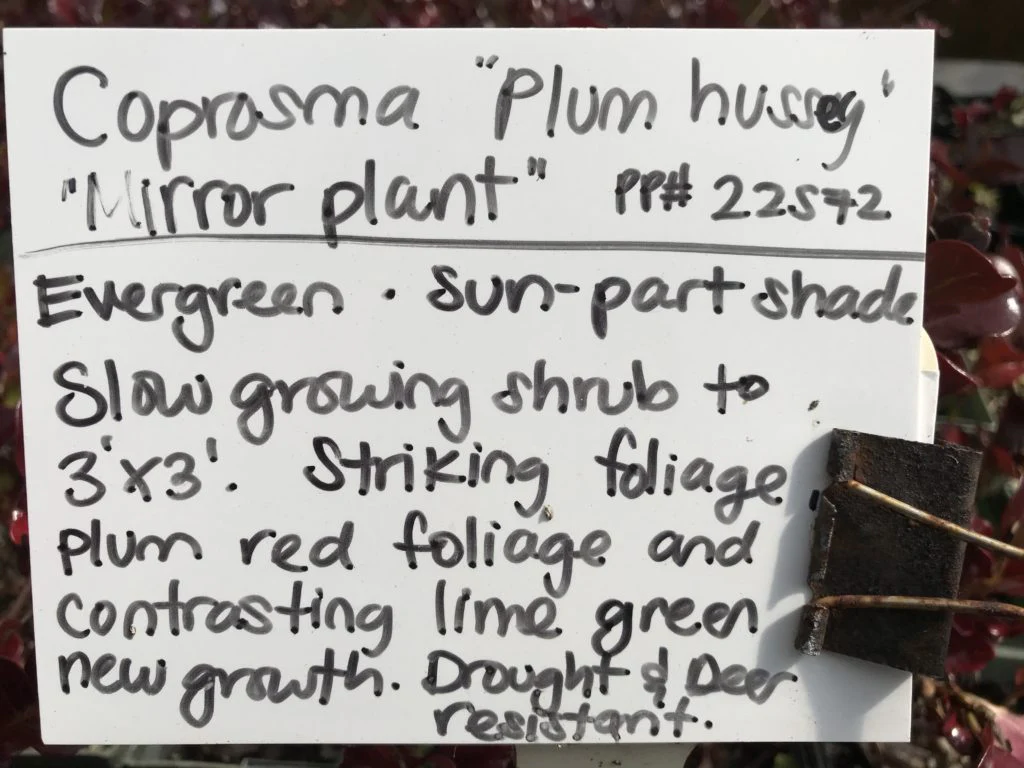 Coprosma "Plum hussey'
"Mirror plant" PP# 22572
Evergreen · sun-part shade
Slow growing shrub to
3'x3'. Striking foliage,
plum red foliage and
contrasting lime green
new growth. Drought & Deer
resistant.